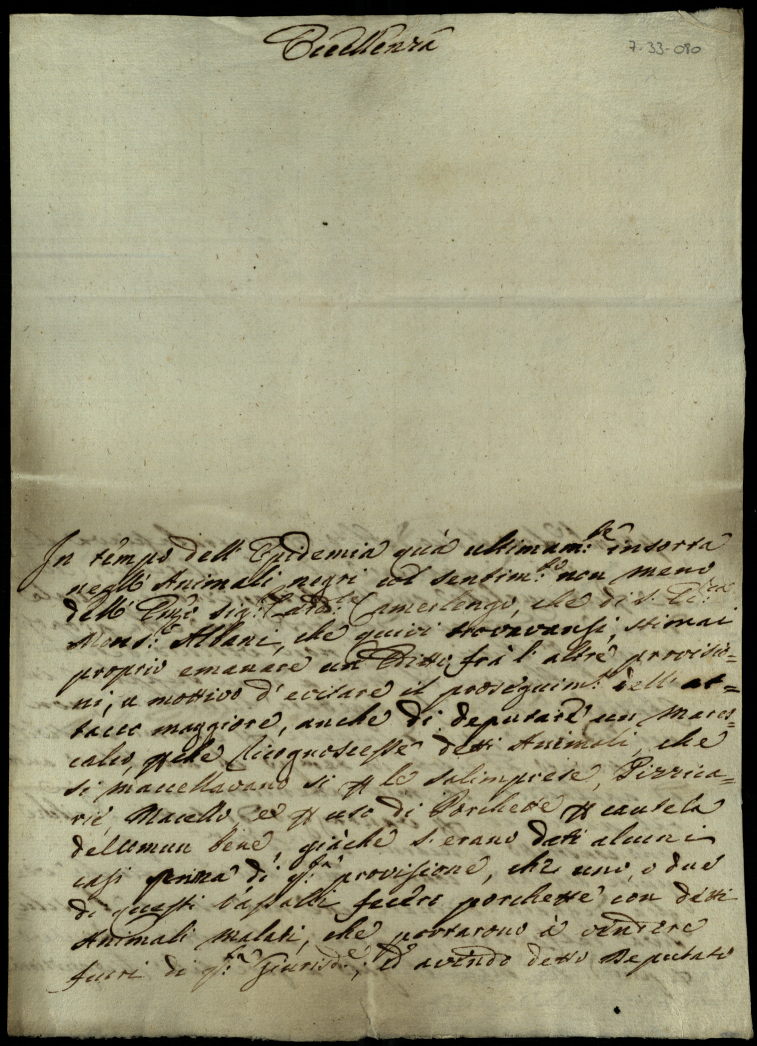 Eccellenza
7-33-080
In tempo dell'Epidemia quà ultimam:te insorta
negl'Animali negri col sentim:to non meno
dell' Emo sig:r Card:le Camerlengo, che di S. Ecc:za
Mons:r Albani, che quivi trovavansi, stimai
proprio emanare un Editto, frà l'altre provisio=
ni, a mottivo d'evitare il proseguim:to dell'at=
tacco maggiore, anche di deputare un Mares=
calco, che ricognoscesse detti Animali, che
si macellavano si p le salimprese, Pizzica=
rie, Macello, et p uso di Porchette p cautela
del Comun bene, giàche s'erano dati alcuni
casi prima di q:sta provisione, che uno, o due
di questi Vassalli fecero porchette con detti
Animali malati, che portarono à vendere
fuori di q:sta Giurisd:e; ed avendo detto Deputato